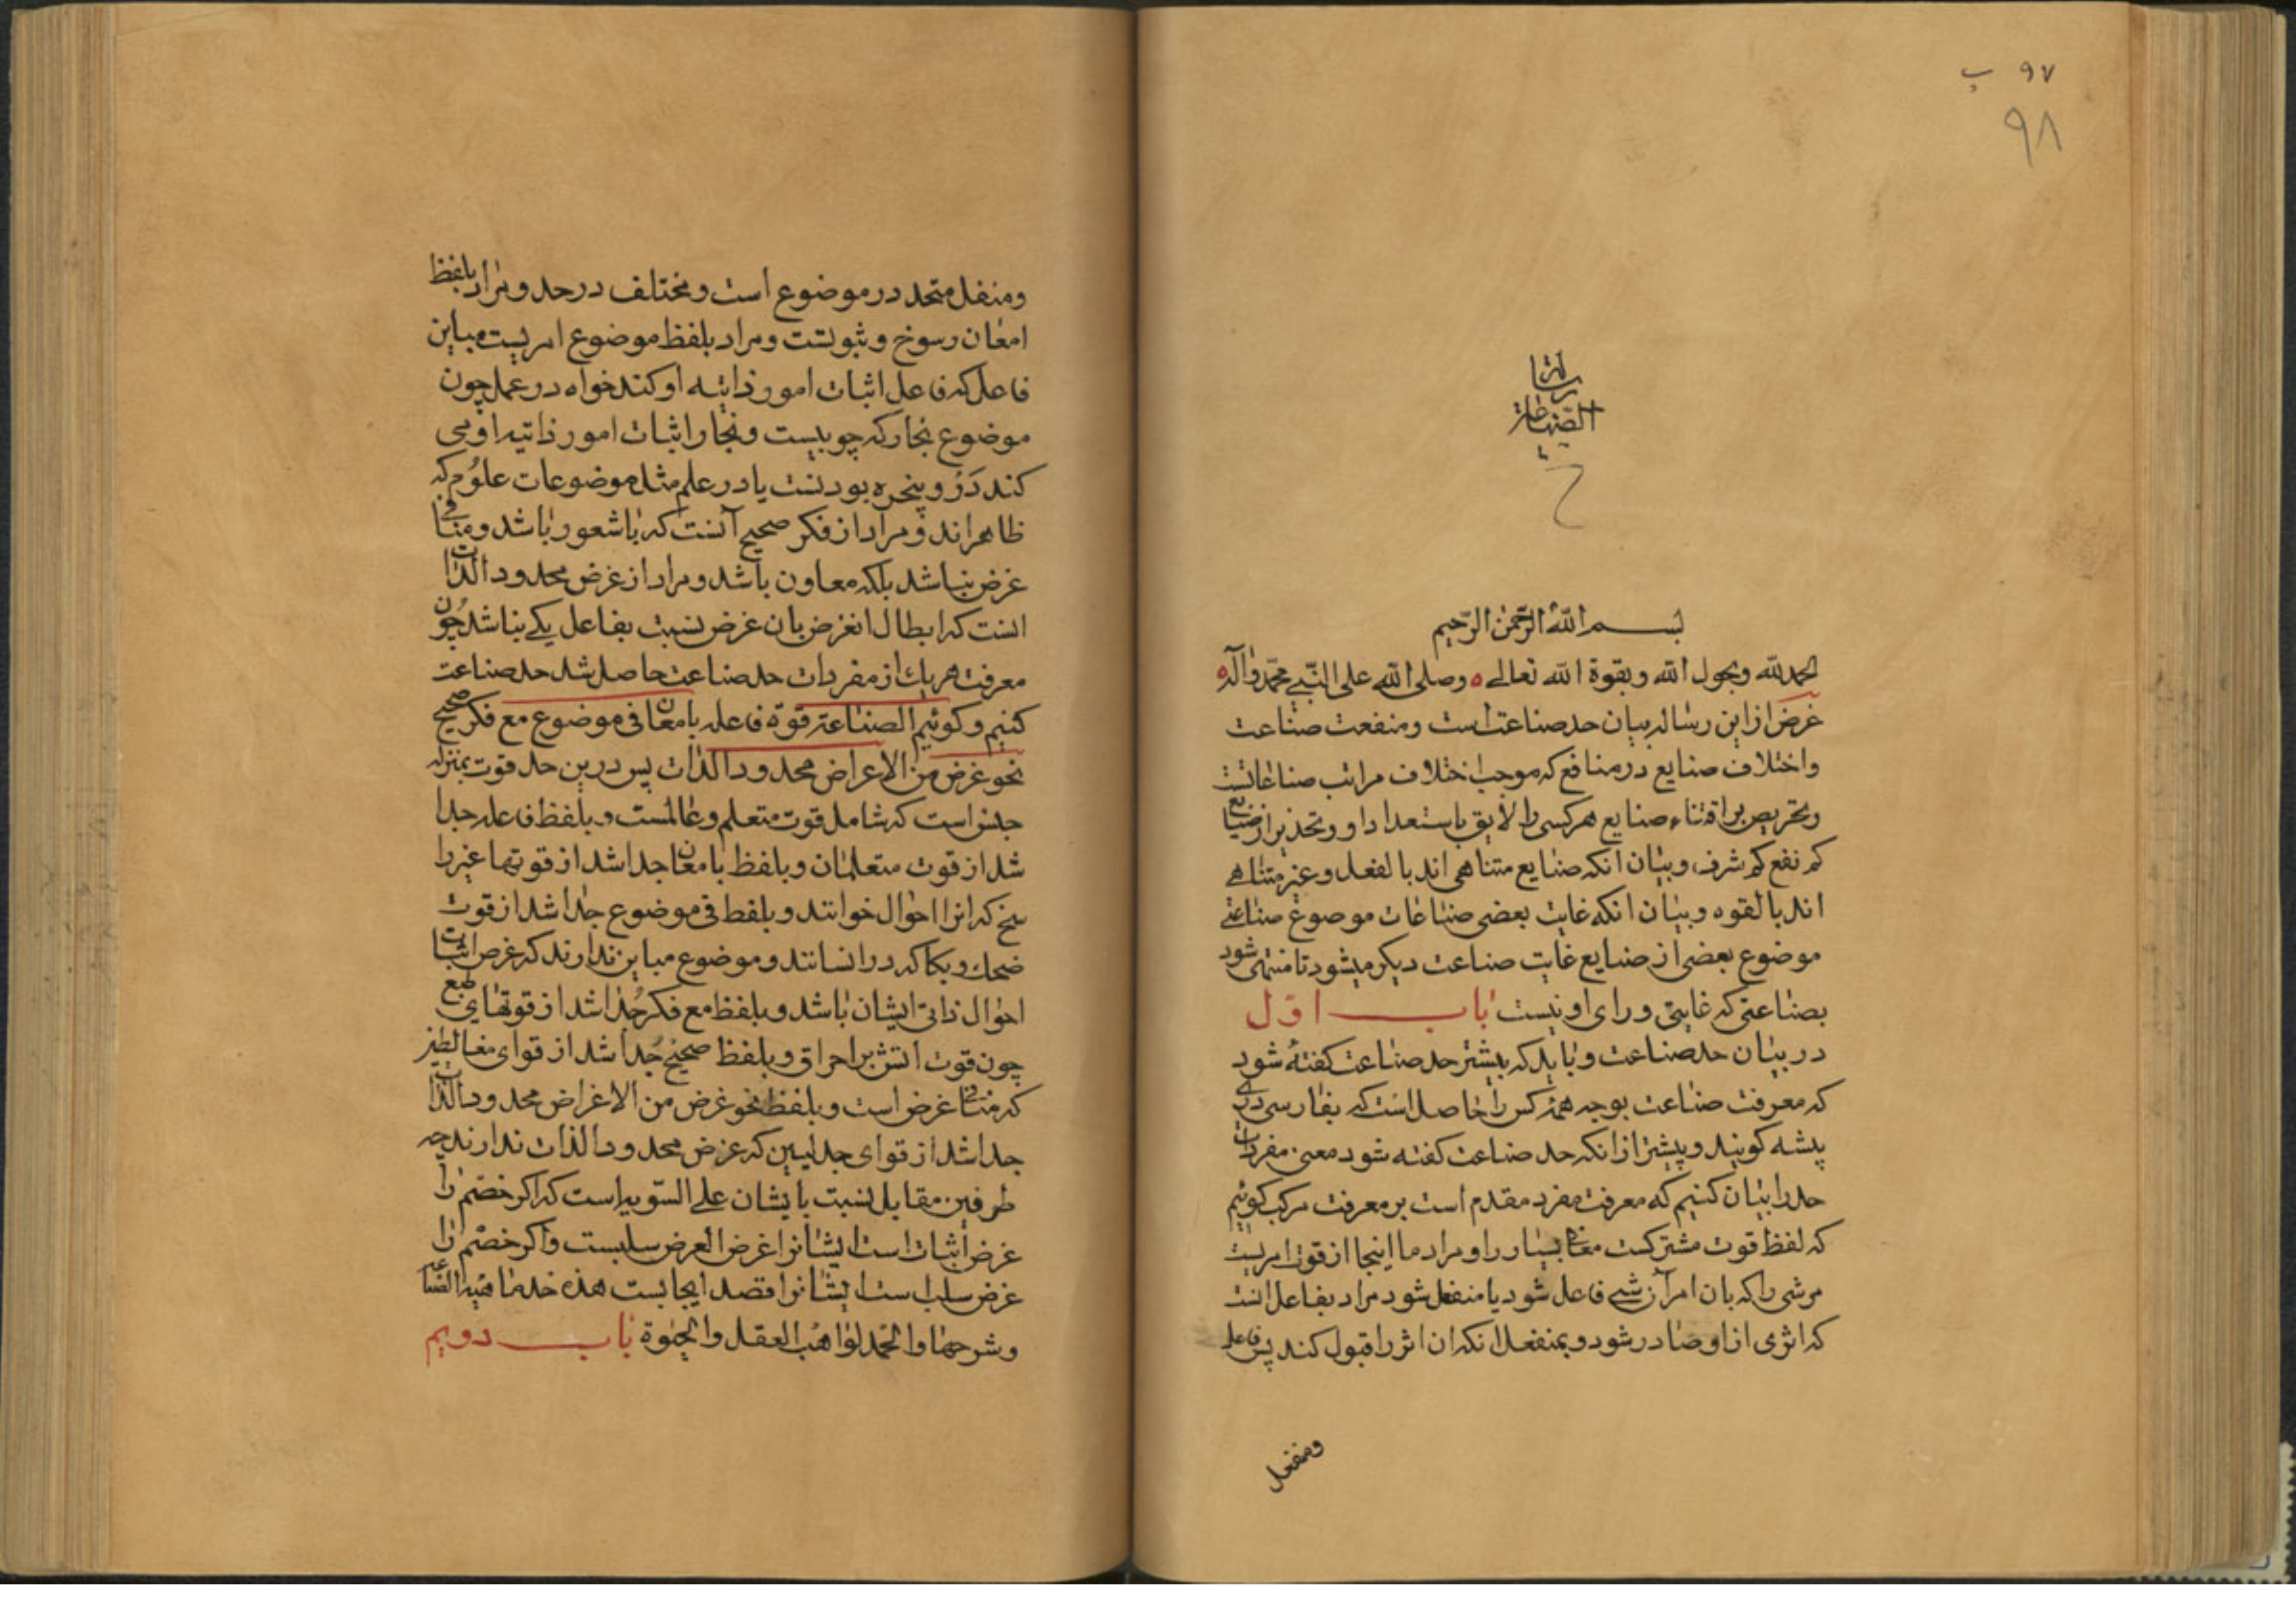 ۹۷ ب
۹۸
رسالة
الصناعة
بسم الله الرحمن الرحیم
الحمد لله وبحول الله وبقوة الله تعالی ه وصلی الله علی النبی محمد وآله ه
غرض ازاین رساله بیان حد صناعتست ومنفعت صناعت
واختلاف صنایع در منافع که موجب اختلاف مراتب صناعاتست
وتحریص بر اقتناء صنایع هر کسی را لایق باستعداد او وتحذیر از صنایع
کم نفع کم شرف وبیان انکه صنایع متناهی اند بالفعل وغیر متناهی
اند بالقوه وبیان انکه غایت بعضی صناعات موضوع صناعتی
موضوع بعضی از صنایع غایت صناعت دیکر میشود تا منتهی شود
بصناعتی که غایتی ورای او نیست باب اول
در بیان حد صناعت وباید که پیشتر حد صناعت کفته شود
که معرفت صناعت بوجه همه کس را حاصل است که بفارسی دری
پیشه کویند وپیشتر از انکه حد صناعت کفته شود معنی مفردات
حد را بیان کنیم که معرفت مفرد مقدم است بر معرفت مرکب کوئیم
که لفظ قوت مشترکست معانی بسیار را ومراد ما اینجا از قوت امریست
مر شی را که بان امر آن شی فاعل شود یا منفعل شود مراد بفاعل انست
که اثری از او صادر شود وبمنفعل انکه ان اثر را قبول کند پس فاعل
ومنفعل
ومنفعل متحد در موضوع است ومختلف در حد ومراد بلفظ
امعان رسوخ وثبوتست ومراد بلفظ موضوع امریست مباین
فاعل که فاعل اثبات امور ذاتیه او کند خواه در عمل چون
موضوع نجار که چوبیست ونجار اثبات امور ذاتیه او می
کند در وپنجره بودنست یا در علم مثل موضوعات علوم که
ظاهراند ومراد از فکر صحیح آنست که باشعور باشد ومنافی
غرض نباشد بلکه معاون باشد ومراد از غرض محدود الذات
انست که ابطال انغرض بان غرض نسبت بفاعل یکی نباشد چون
معرفت هریک از مفردات حد صناعت حاصل شد حد صناعت
کنیم وکوئیم الصناعة قوة فاعله بامعان فی موضوع مع فکر صحیح
نحو غرض من الاعراض محدود الذات پس درین حد قوت بمنزله
جنس است که شامل قوت متعلم وعالمست وبلفظ فاعله جدا
شد از قوت متعلمان وبلفظ بامعان جدا شد از قوتها غیر را
سخ که انرا احوال خوانند وبلفظ فی موضوع جدا شد از قوت
ضحک وبکا که در انسانند وموضوع مباین ندارند که غرض اثبات
احوال ذاتی ایشان باشد وبلفظ مع فکر جدا شد از قوتهای طبع
چون قوت اتش بر احراق وبلفظ صحیح جدا شد از قوای مغالطین
که منافی غرض است وبلفظ نحو غرض من الاغراض محدود الذات
جدا شد از قوای جدلیین که غرض محدود الذات ندارند چه
طرفین مقابل نسبت بایشان علی السویه است که اکر خصم را
غرض اثبات است ایشانرا غرض العرض سلبست واکر خصم را
غرض سلب است ایشانرا قصد ایجابست هذه حد ماهیه الصناعة
وشرحها والحمد لواهب العقل والحیوة باب دویم